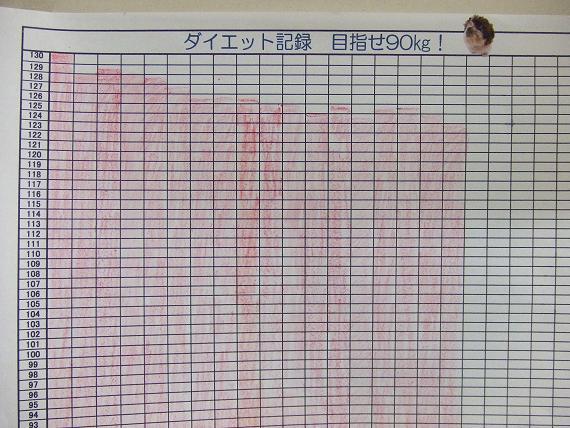 ダイエット記録　目指せ90㎏！
130
129
128
127
126
125
124
123
122
121
120
119
118
117
116
115
114
113
112
111
110
109
108
107
106
105
104
103
102
101
100
99
98
97
96
95
94
93